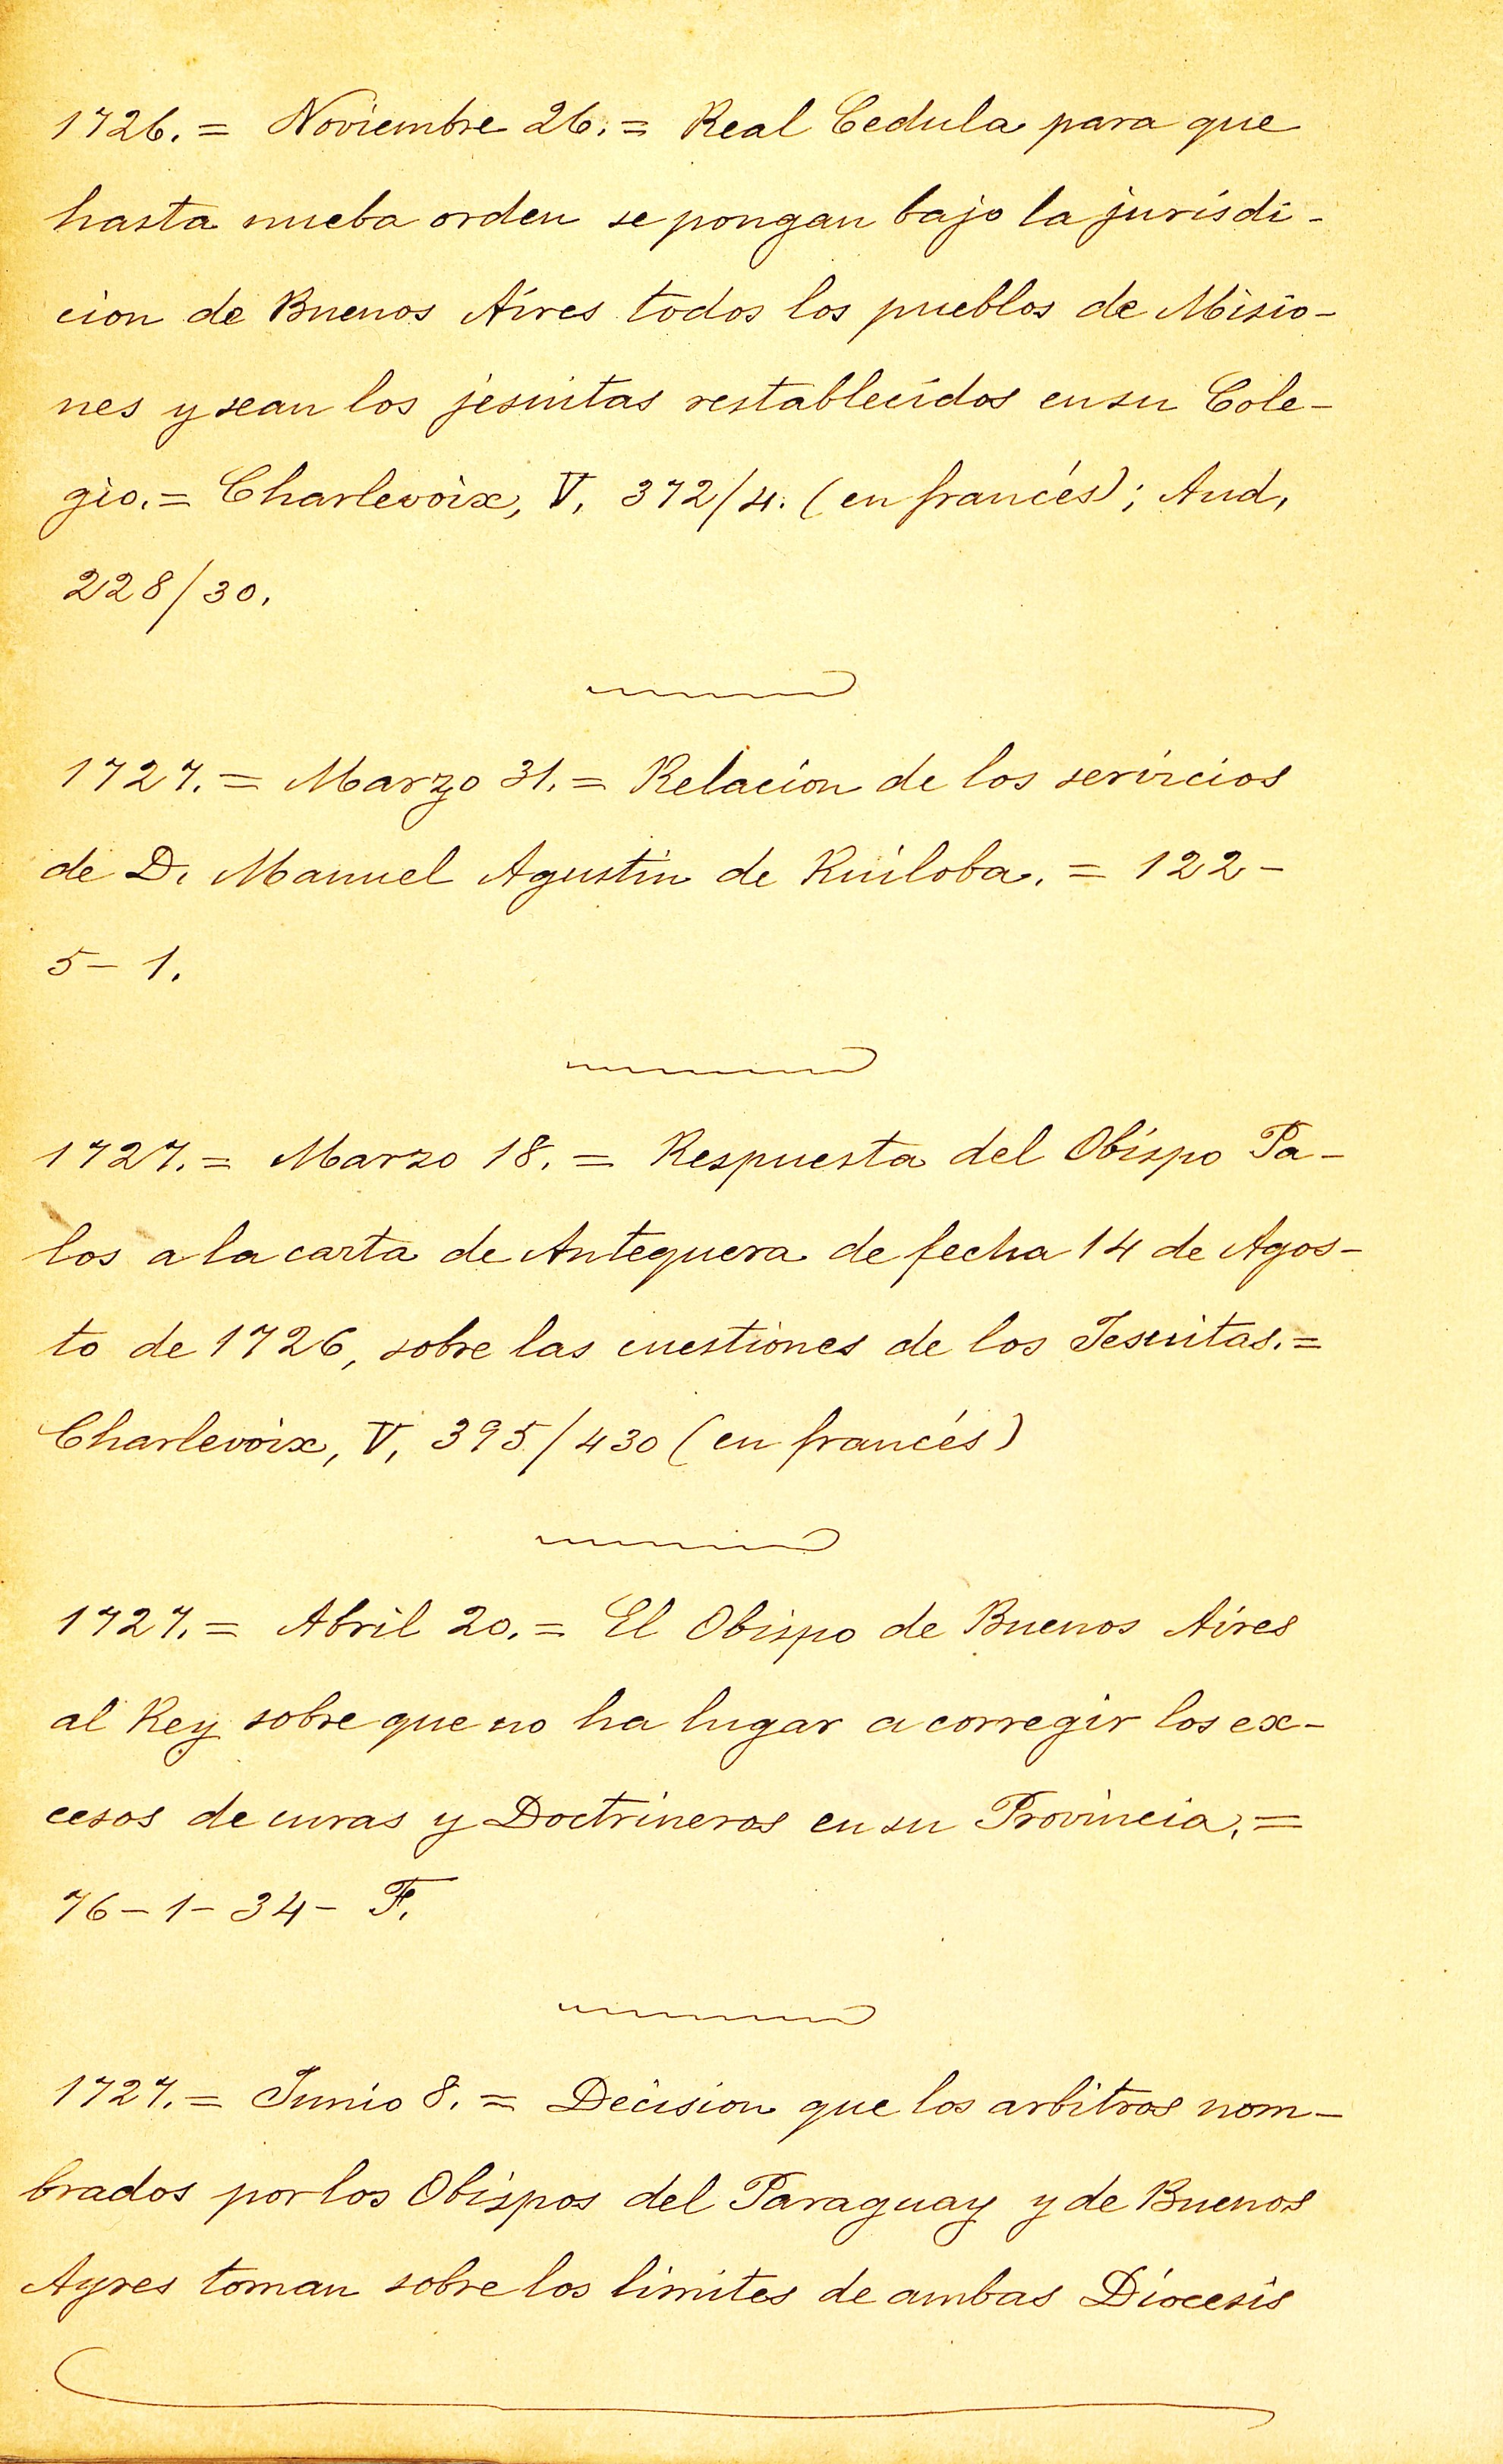 1726.= Noviembre 26.= Real Cedula para que
hasta nueba orden se pongan bajo la jurisdi-
cion de Buenos Aires todos los pueblos de Misio-
nes y sean los jesuitas restablecidos en su Cole-
gio.= Charlevoix, V, 372/4. (en francés); Aud,
228/30.
1727.= Marzo 31.= Relacion de los servicios
de D. Manuel Agustin de Ruiloba.= 122-
5-1.
1727.= Marzo 18.= Respuesta del Obispo Pa-
los a la carta de Antequera de fecha 14 de Agos-
to de 1726, sobre las cuestiones de los Jesuitas.=
Charlevoix, V, 395/430 (en francés)
1727.= Abril 20.= El Obispo de Buenos Aires
al Rey sobre que no ha lugar a corregir los ex-
cesos de curas y Doctrineros en su Provincia.=
76-1-34- F.
1727.= Junio 8.= Decision que los arbitros nom-
brados por los Obispos del Paraguay y de Buenos
Ayres toman sobre los limites de ambas Diocesis